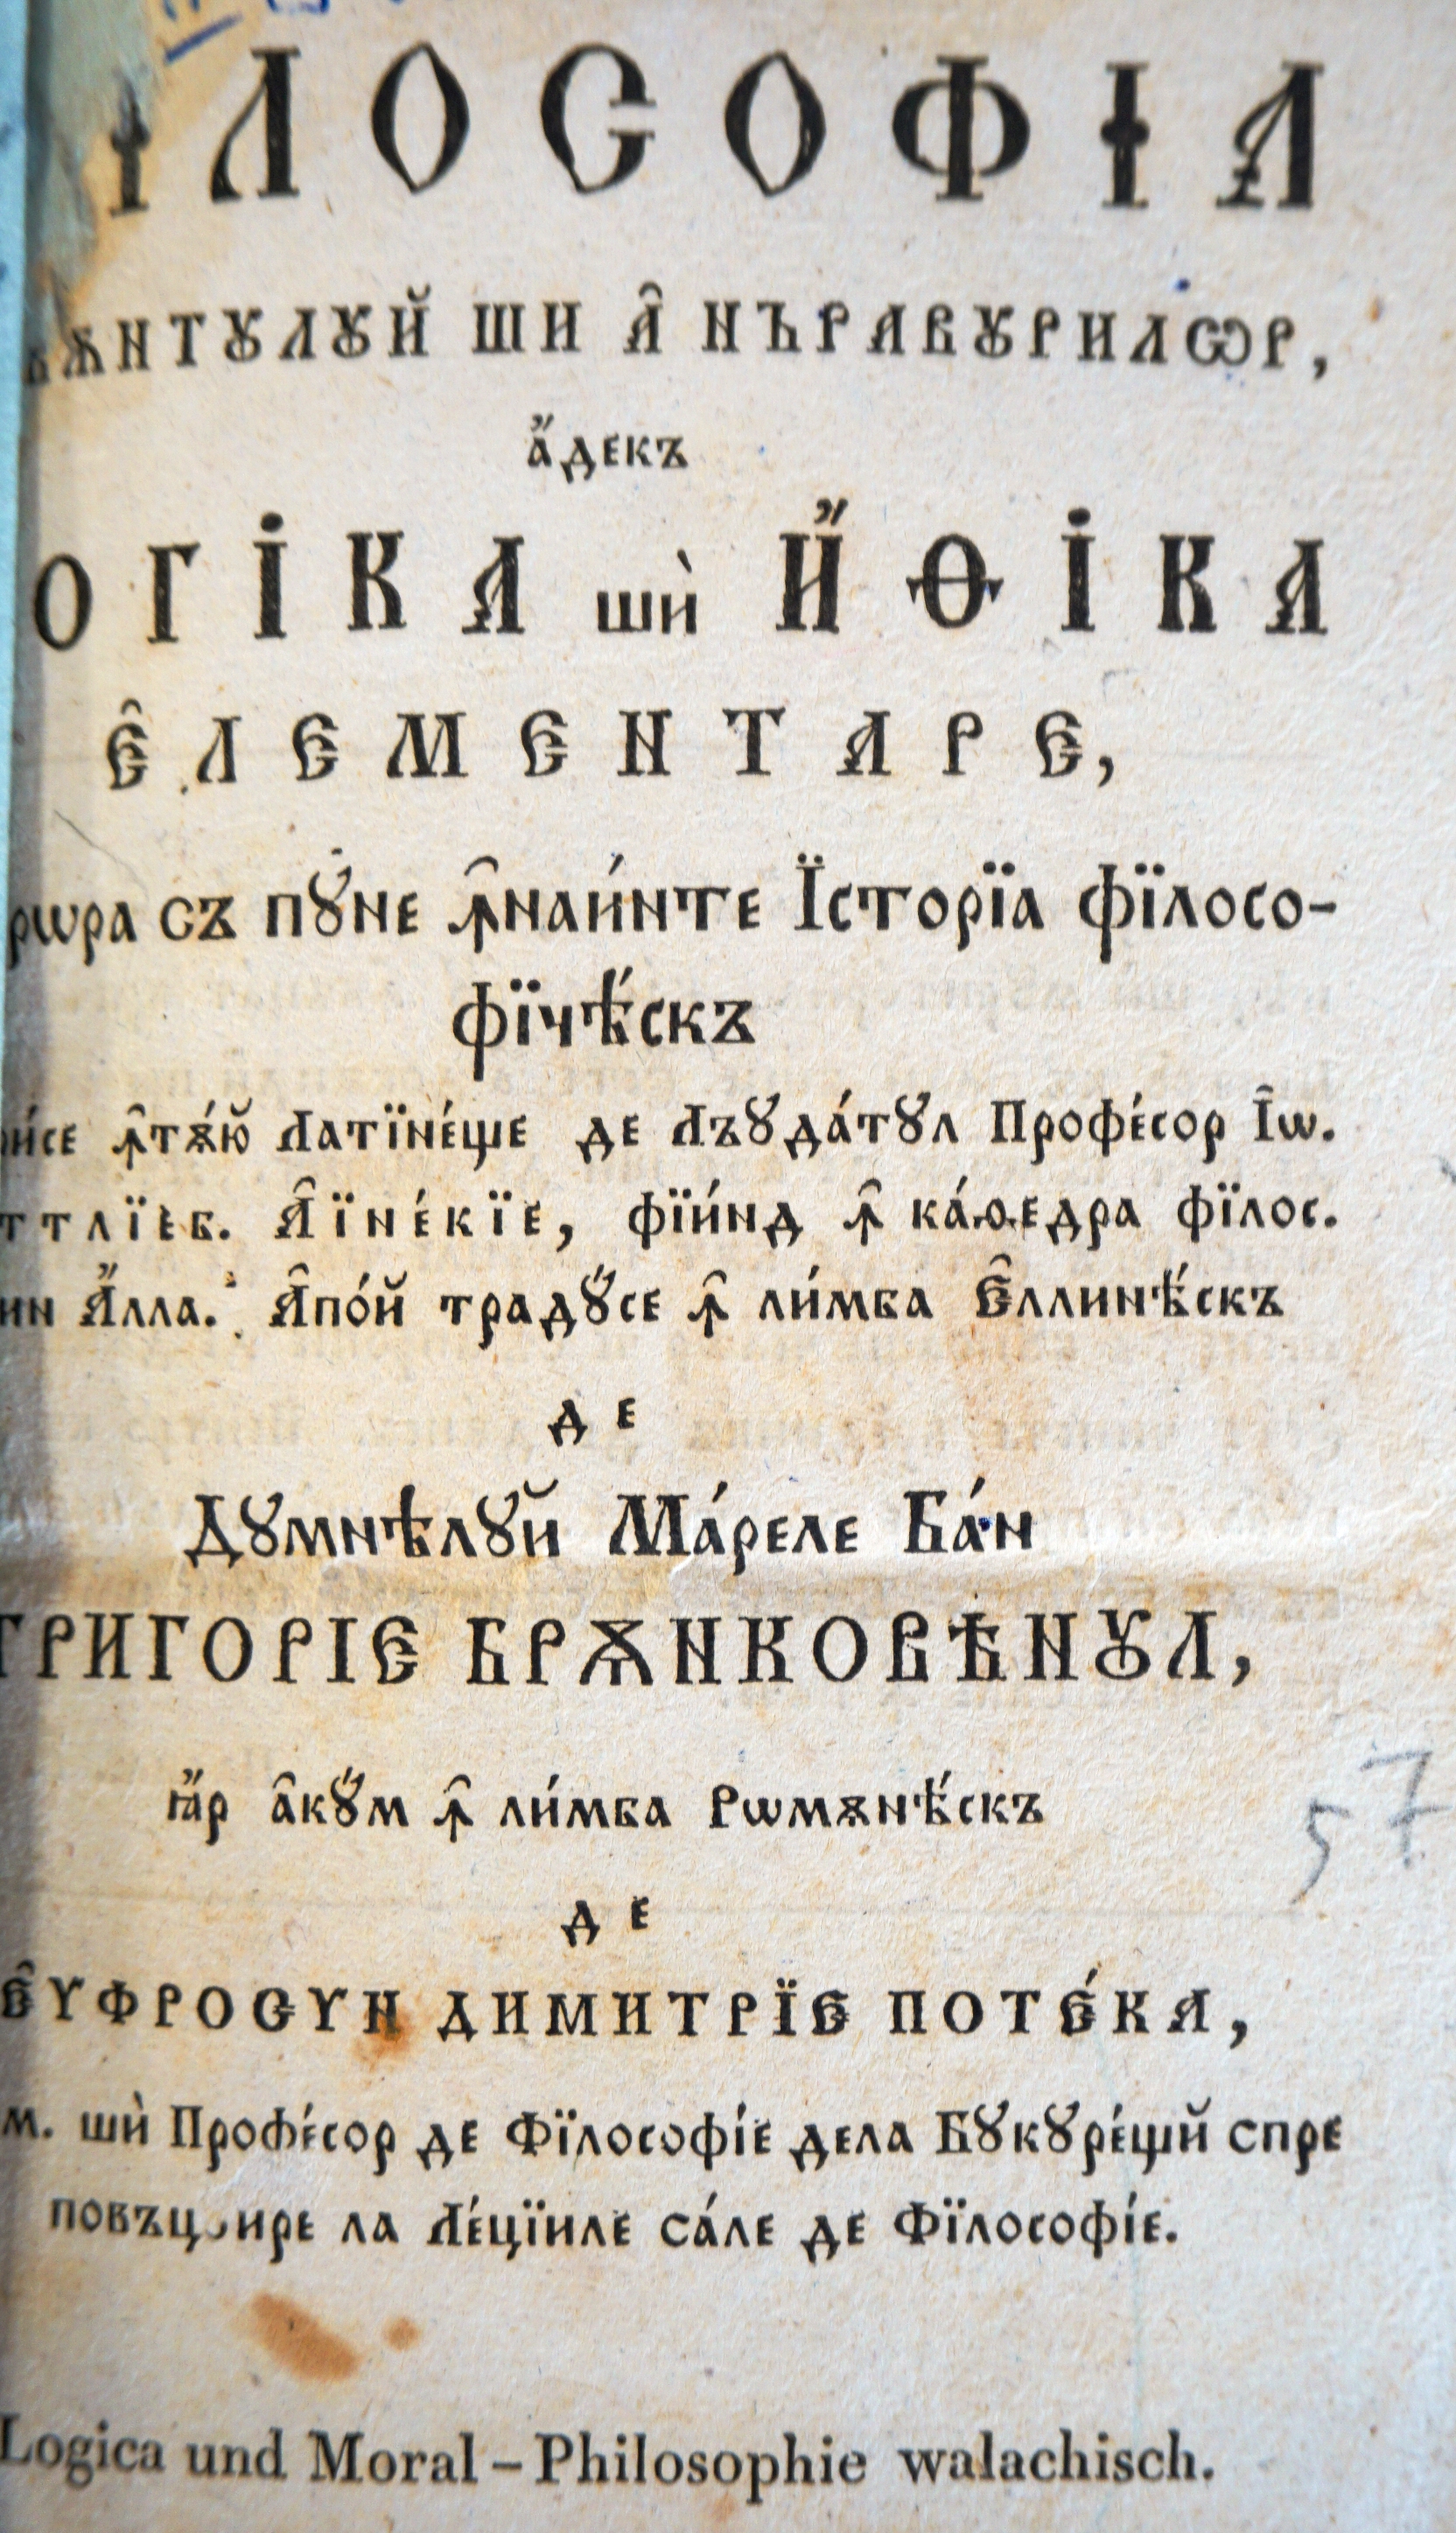 ІЛОСОФІА
ѪНТꙊЛꙊЙ ШИ А̑ НЪРАВꙊРИЛѠР,
а҆́декъ
ОГІКА шѝ И҆́ѲІКА
Є̑ЛЕМЕНТАРЕ,
рѡра съ пꙋ́не ꙟ̑наи́нте Їсторїа фїлосо-
фїчѣ́скъ
ꙟ̑тѫ́ю̆ Латїне́ще де Лъꙋда́тꙋл Профе́сор І̑ѡ.
ттлїев. А̑їне́кїе, фїи́нд ꙟ̑ ка́ѳедра фїлос.
ин А҆́лла. А̑по́й традꙋ́се ꙟ̑ ли́мба Є̑ллинѣ́скъ
де
Дꙋмнѣлꙋй Ма́реле Ба́н
ГРИГОРІЕ БРѪНКОВѢНꙊЛ,
ꙗ҆́р а̑кꙋ́м ꙟ̑ ли́мба Рѡмѫнѣ́скъ
де
Є̑ѴФРОСѴН ДИМИТРЇЕ ПОТЕ́КА,
м. шѝ Профе́сор де Фїлософі́е дела Бꙋкꙋре́щй спре
ла Ле́цїиле са́ле де Фїлософі́е.
57
Logica und Moral – Philosophie walachisch.